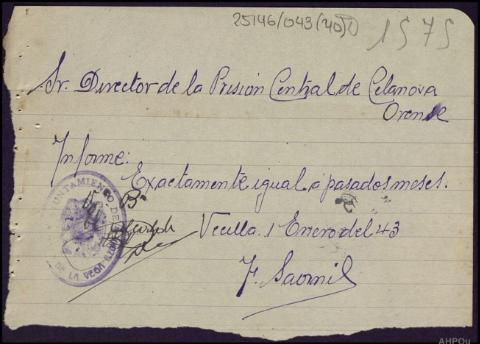 25146/043(40)
1575
Sr. Director de la Prisión Central de Celanova
Orense
Informe:
Exactamente igual a pasados meses.
Vecilla 1 Enero del 43
AYUNTAMIENTO DE
DE LA VEGA
AHPOu